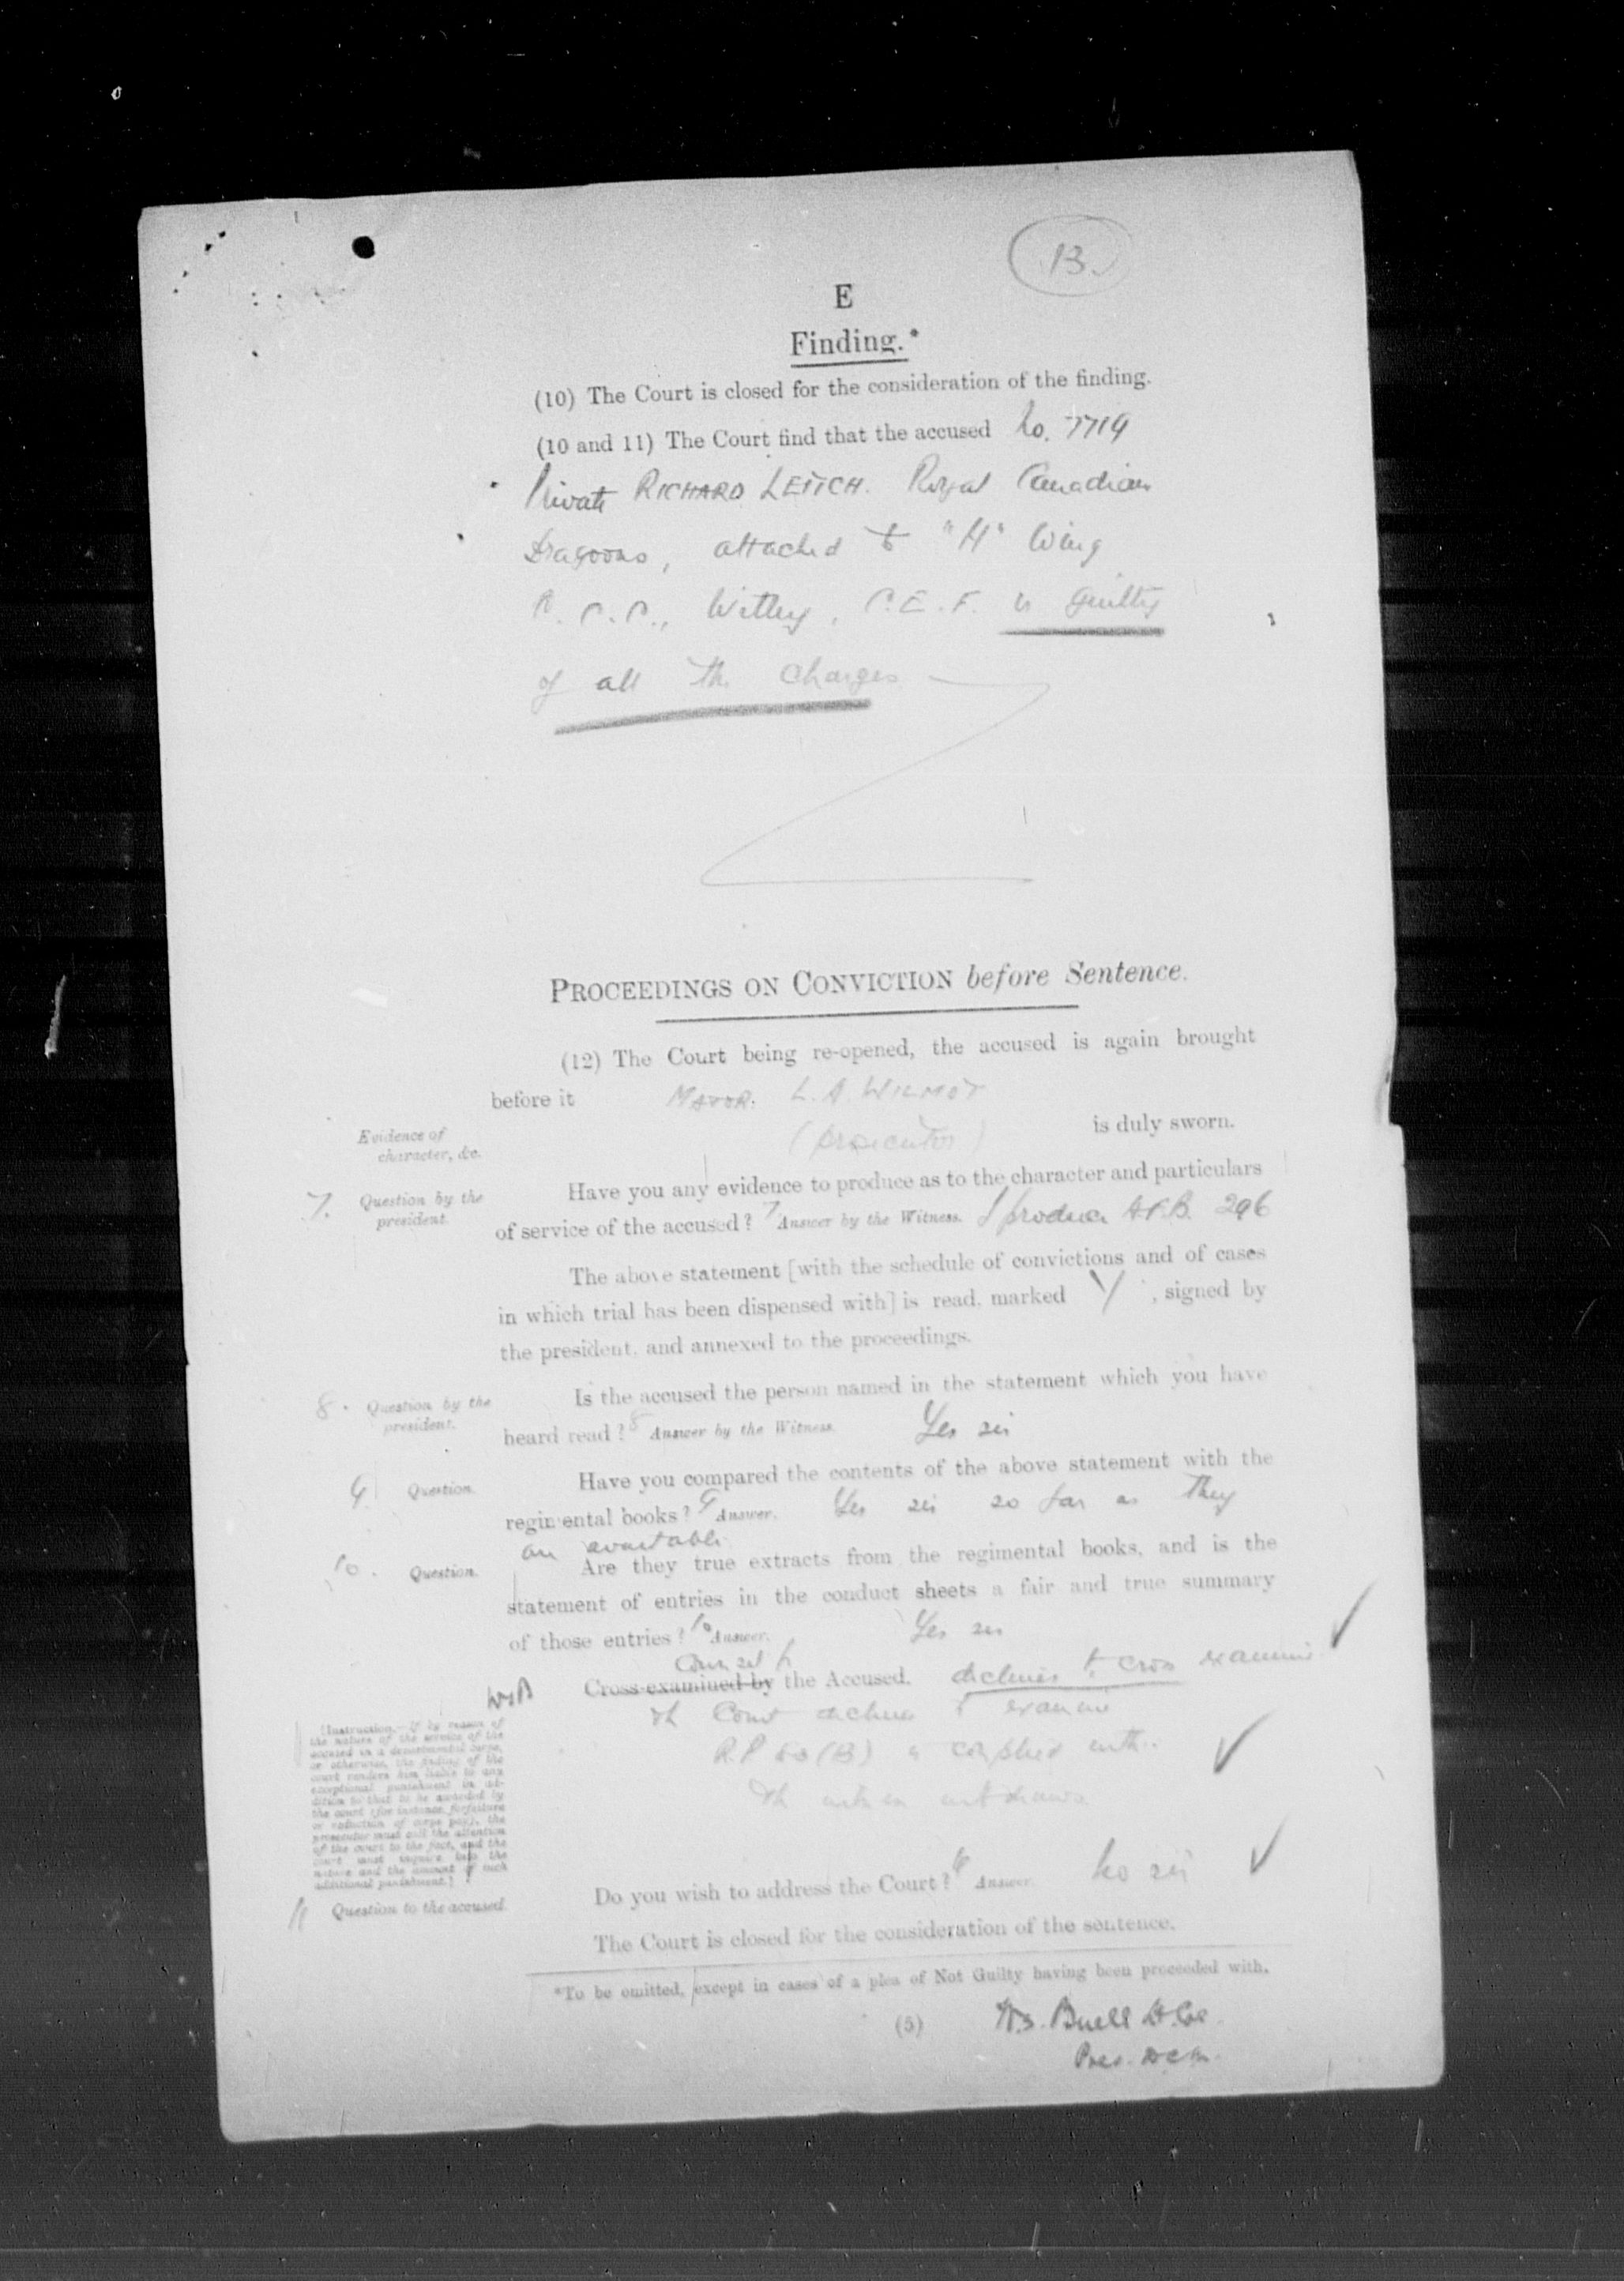 13.
E
Finding.*
(10) The Court is closed for the consideration of the finding.
(10 and 11) The Court find that the accused No. 7719
Private RICHARD LEITCH. Royal Canadian
Dragoons, attached to "H" Wing
C.C.C., Witley, C.E.F. is guilty
of all the charges
PROCEEDINGS ON CONVICTION before Sentence.
(12) The Court being re-opened, the accused is again brought
before it MAJOR. L. A. WILMOT
(prosecutor) is duly sworn.
Evidence of
character, &c.
7. Question by the
president.
Have you any evidence to produce as to the character and particulars
of service of the accused? 7 Answer by the Witness. I produce A.F.B. 296
The above statement [with the schedule of convictions and of cases
in which trial has been dispensed with] is read, marked Y, signed by
the president, and annexed to the proceedings.
8. Question by the
president.
Is the accused the person named in the statement which you have
heard read? 8 Answer by the Witness. Yes sir
9 Question.
Have you compared the contents of the above statement with the
regimental books? 9 Answer. Yes sir so far as they
are available.
10. Question.
Are they true extracts from the regimental books, and is the
statement of entries in the conduct sheets a fair and true summary
of those entries? 10 Answer. Yes sir
Counsel for
WsB Cross-examined by the Accused. declines to cross examine
The Court declines to examine
R.P. (B) is complied with.
The witness withdraws
[Instruction.—If by reason of
the nature of the service of the
accused in a departmental corps,
or otherwise, the finding of the
court renders him liable to any
exceptional punishment in ad-
dition to that to be awarded by
the court (for instance, forfeiture
or reduction of corps pay), the
prosecutor must call the attention
of the court to the fact, and the
court must inquire into the
nature and the amount of such
additional punishment.]
11 Question to the accused.
Do you wish to address the Court? 11 Answer. No sir
The Court is closed for the consideration of the sentence.
*To be omitted, except in cases of a plea of Not Guilty having been proceeded with.
(5) W.S. Buell Lt. Col.
Pres. DCM.